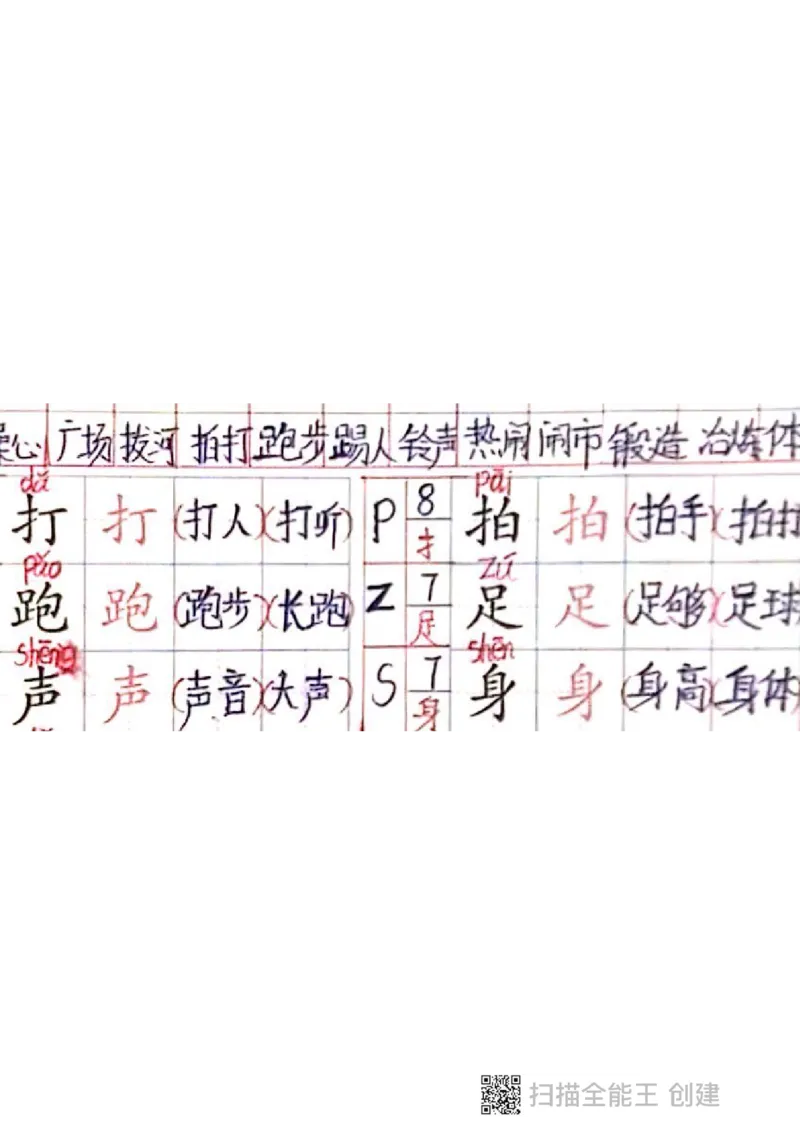 心 广场 拔河 拍打 跑步 踢人 铃声 热闹 闹市 锻造 冶炼 体
dǎ pāi
打 打 (打人)(打听) P 8 扌 拍 拍 (拍手)(拍打
pǎo zú
跑 跑 (跑步)(长跑) Z 7 足 足 足 (足够)(足球
shēng shēn
声 声 (声音)(大声) S 7 身 身 身 (身高)(身体
扫描全能王 创建